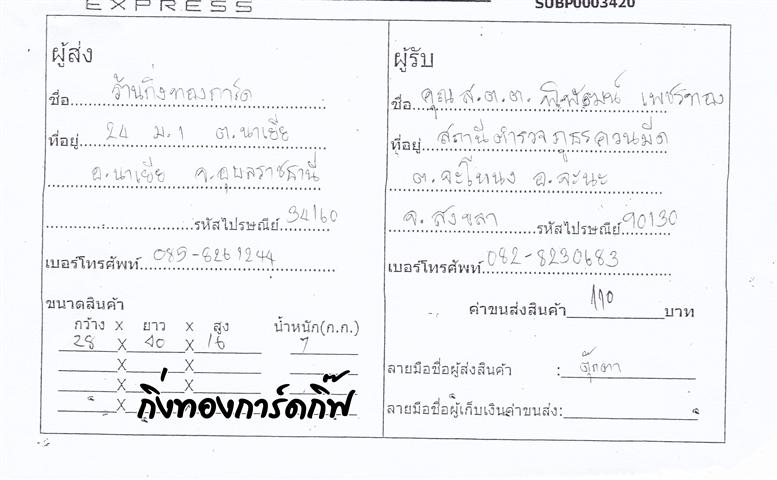 EXPRESS
SUBP0003420
ผู้ส่ง
ชื่อ ร้านกิ่งทองการ์ด
ที่อยู่ 24 ม.1 ต.นาเยีย
อ.นาเยีย จ.อุบลราชธานี
รหัสไปรษณีย์ 34160
เบอร์โทรศัพท์ 085-8261244
ขนาดสินค้า
กว้าง X ยาว X สูง น้ำหนัก(ก.ก.)
28 X 40 X 16 7
X X
X X
X
กิ่งทองการ์ดกิ๊ฟ
ผู้รับ
ชื่อ คุณ ส.ต.ต. พิพัฒน์ เพชรทอง
ที่อยู่ สถานีตำรวจภูธรควนมีด
ต.จะโหนง อ.จะนะ
จ.สงขลา รหัสไปรษณีย์ 90130
เบอร์โทรศัพท์ 082-8230683
ค่าขนส่งสินค้า 170 บาท
ลายมือชื่อผู้ส่งสินค้า : ตุ๊กตา
ลายมือชื่อผู้เก็บเงินค่าขนส่ง: